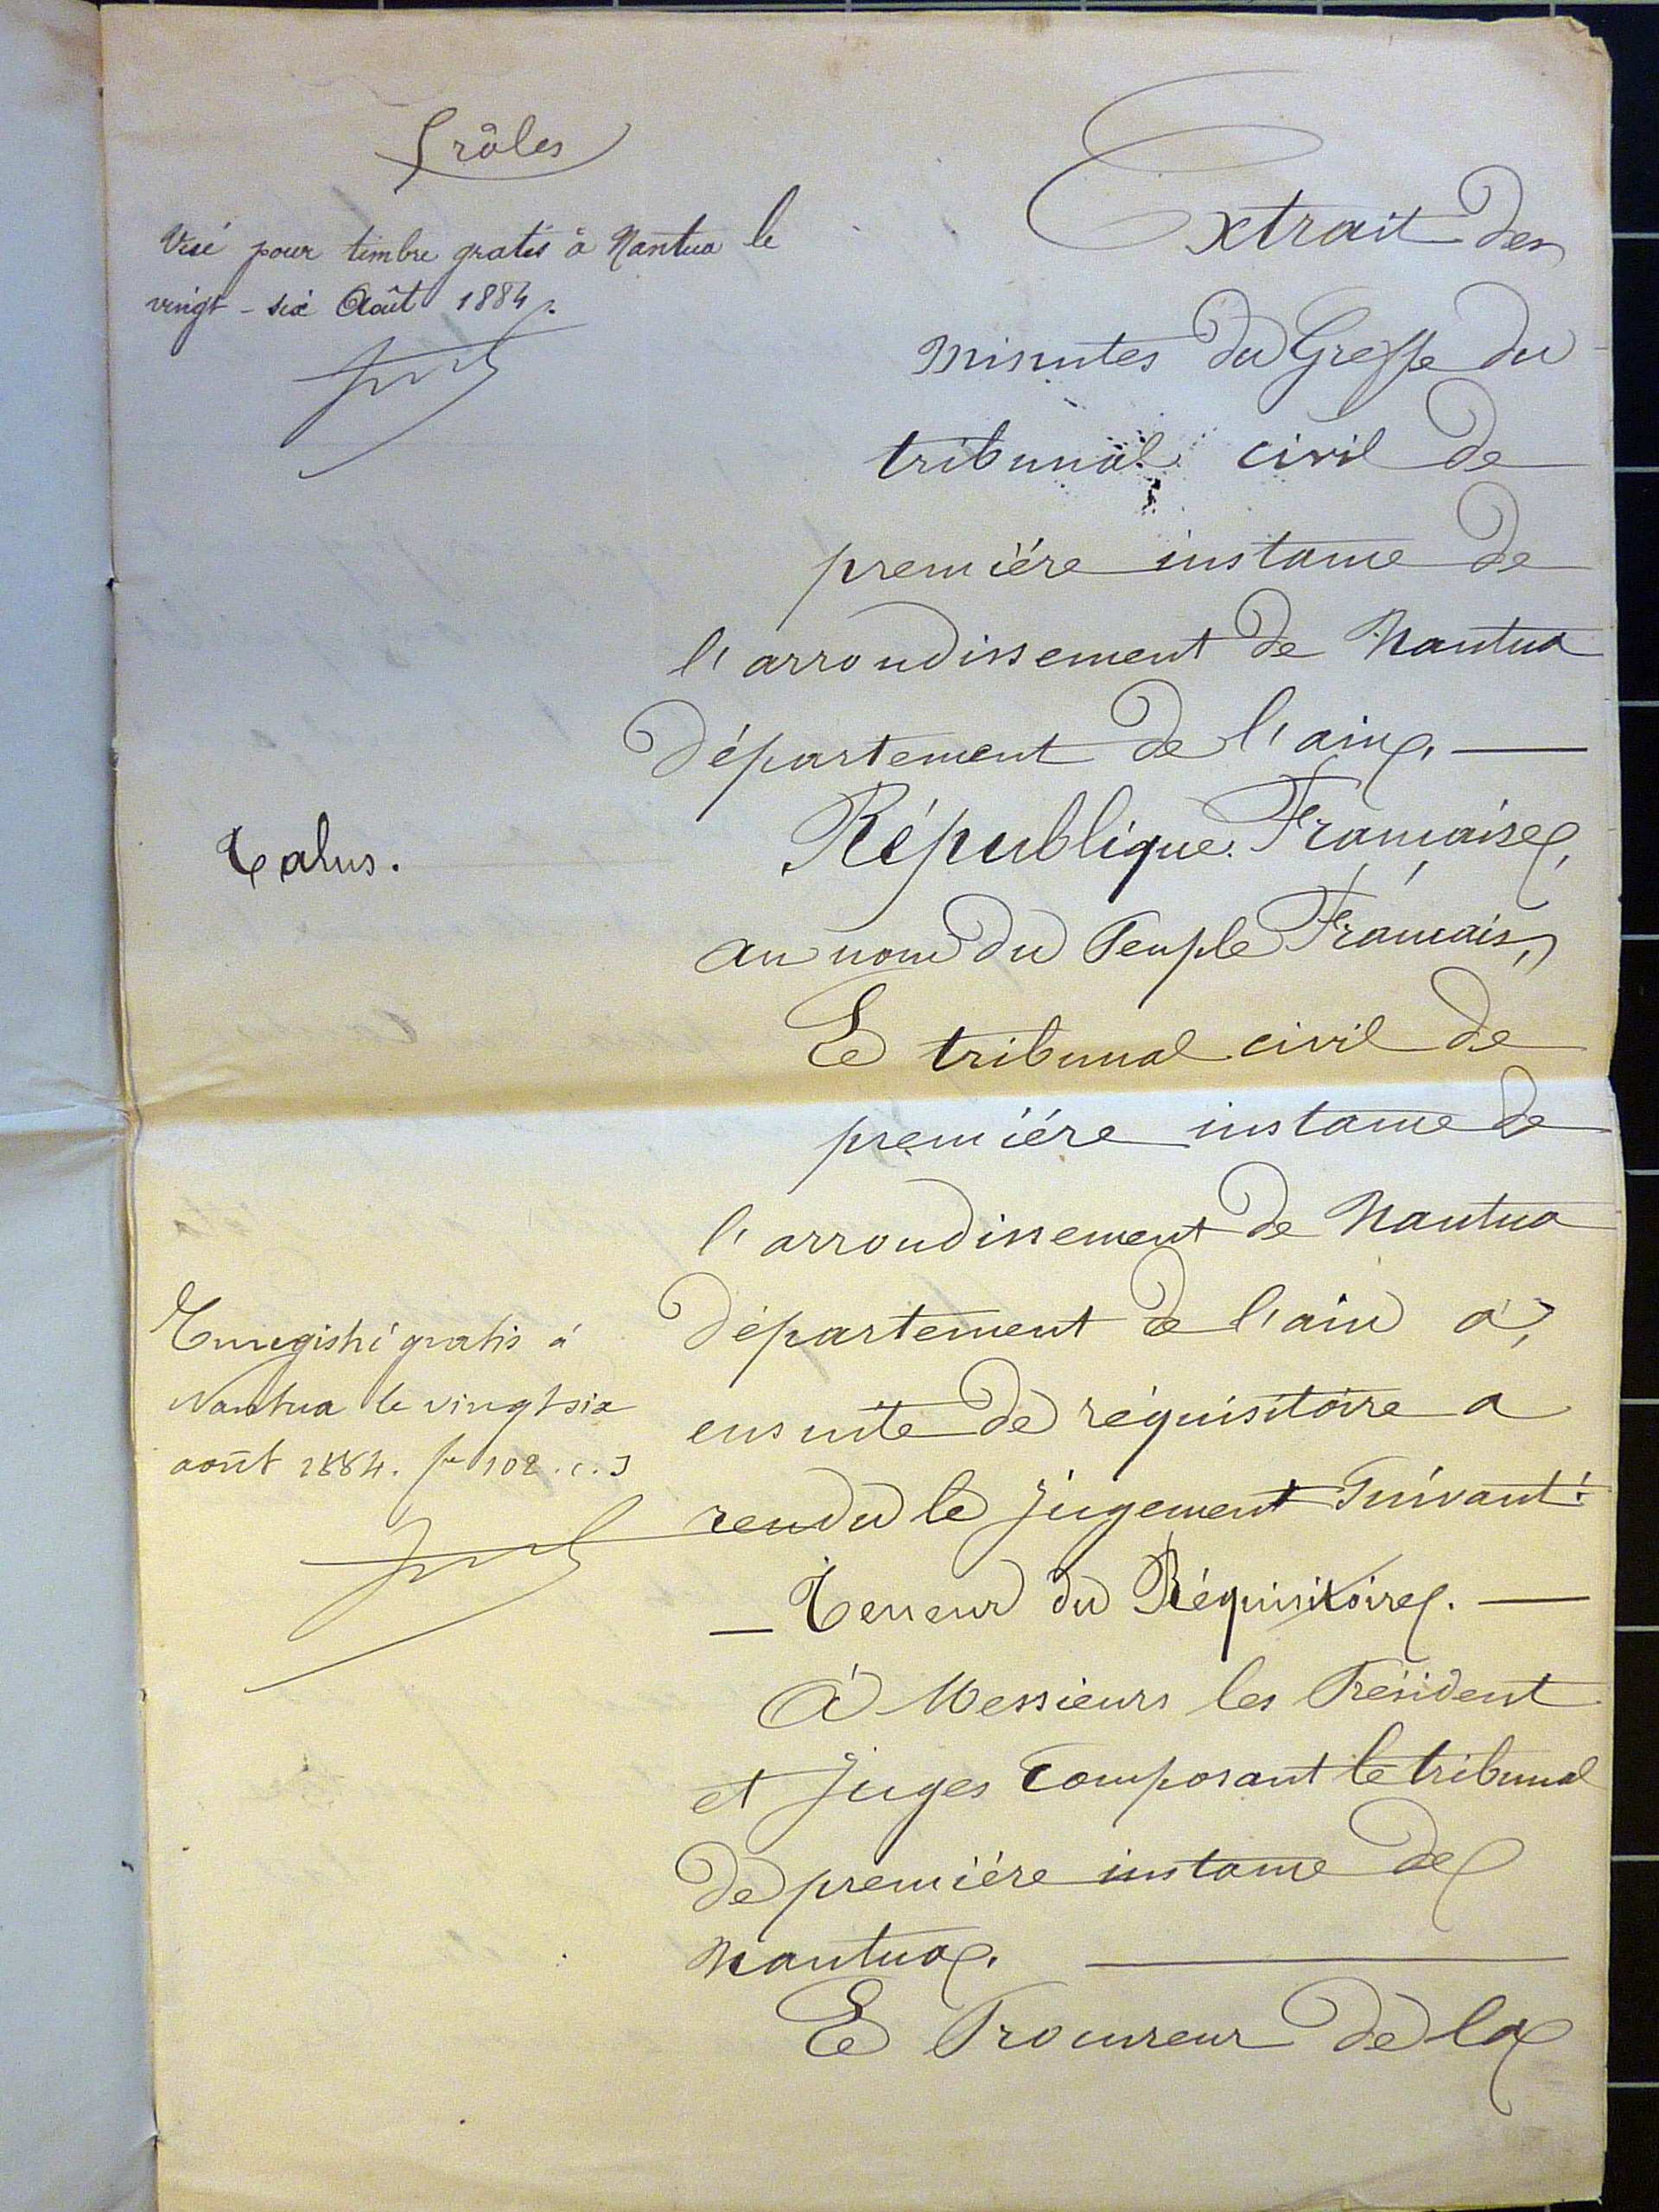 rôles
Visé pour timbre gratis à Nantua le
vingt-six Août 1884.
Talus.
Enregistré gratis à
Nantua le vingt six
août 1884. fo 102. c. 3
Extrait des
minutes du Greffe du
tribunal civil de
première instance de
l'arrondissement de Nantua
département de l'ain. —
République Française,
au nom du Peuple Français,
Le tribunal civil de
première instance de
l'arrondissement de Nantua
département de l'ain à,
ensuite de réquisitoire a
rendu le jugement suivant:
— Teneur du Réquisitoire. —
À Messieurs les Président
et Juges composant le tribunal
de première instance de
Nantua. —
Le Procureur de la